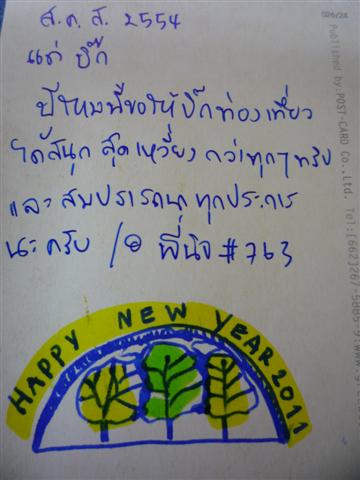 ส.ค.ส. 2554
แด่ บิ๊ก
ปีใหม่นี้ขอให้บิ๊กท่องเที่ยว
ได้สนุก สุดเหวี่ยง กว่าทุกๆทริป
และ สมปรารถนา ทุกประการ
นะครับ / พี่นิจ #763
HAPPY NEW YEAR 2011
Published by: POST-CARD Co., Ltd. Tel:(662)267-5885